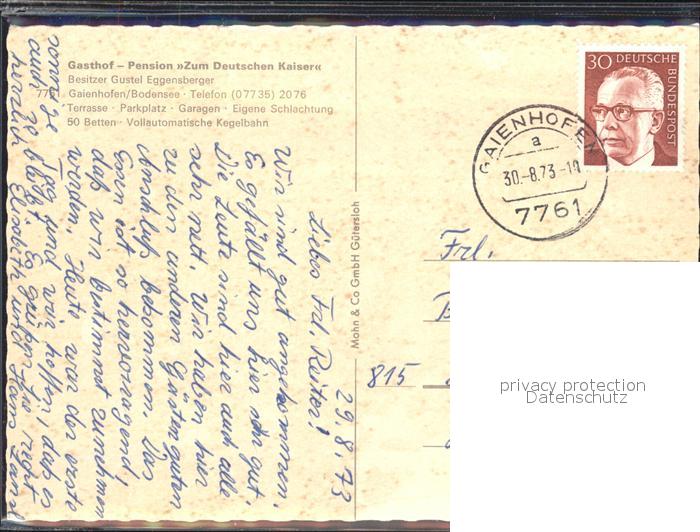 Gasthof – Pension »Zum Deutschen Kaiser«
Besitzer Gustel Eggensberger
7761 Gaienhofen/Bodensee · Telefon (07735) 2076
Terrasse · Parkplatz · Garagen · Eigene Schlachtung
50 Betten · Vollautomatische Kegelbahn
29.8.73
Liebes Frl. Reiter!
Wir sind gut angekommen.
Es gefällt uns hier sehr gut.
Die Leute sind hier auch alle
sehr nett. Wir haben hier
zu den anderen Gästen guten
Anschluß bekommen. Das
Essen ist so hervorragend,
daß wir bestimmt zunehmen
werden. Heute war der erste
sonnige Tag und wir hoffen, daß es
auch so bleibt. Es grüßen Sie recht
herzlich Elisabeth und Hans
Mohn & Co GmbH Gütersloh
30 DEUTSCHE
BUNDESPOST
GAIENHOFEN
a
30.-8.73-10
7761
Frl.
815
privacy protection
Datenschutz